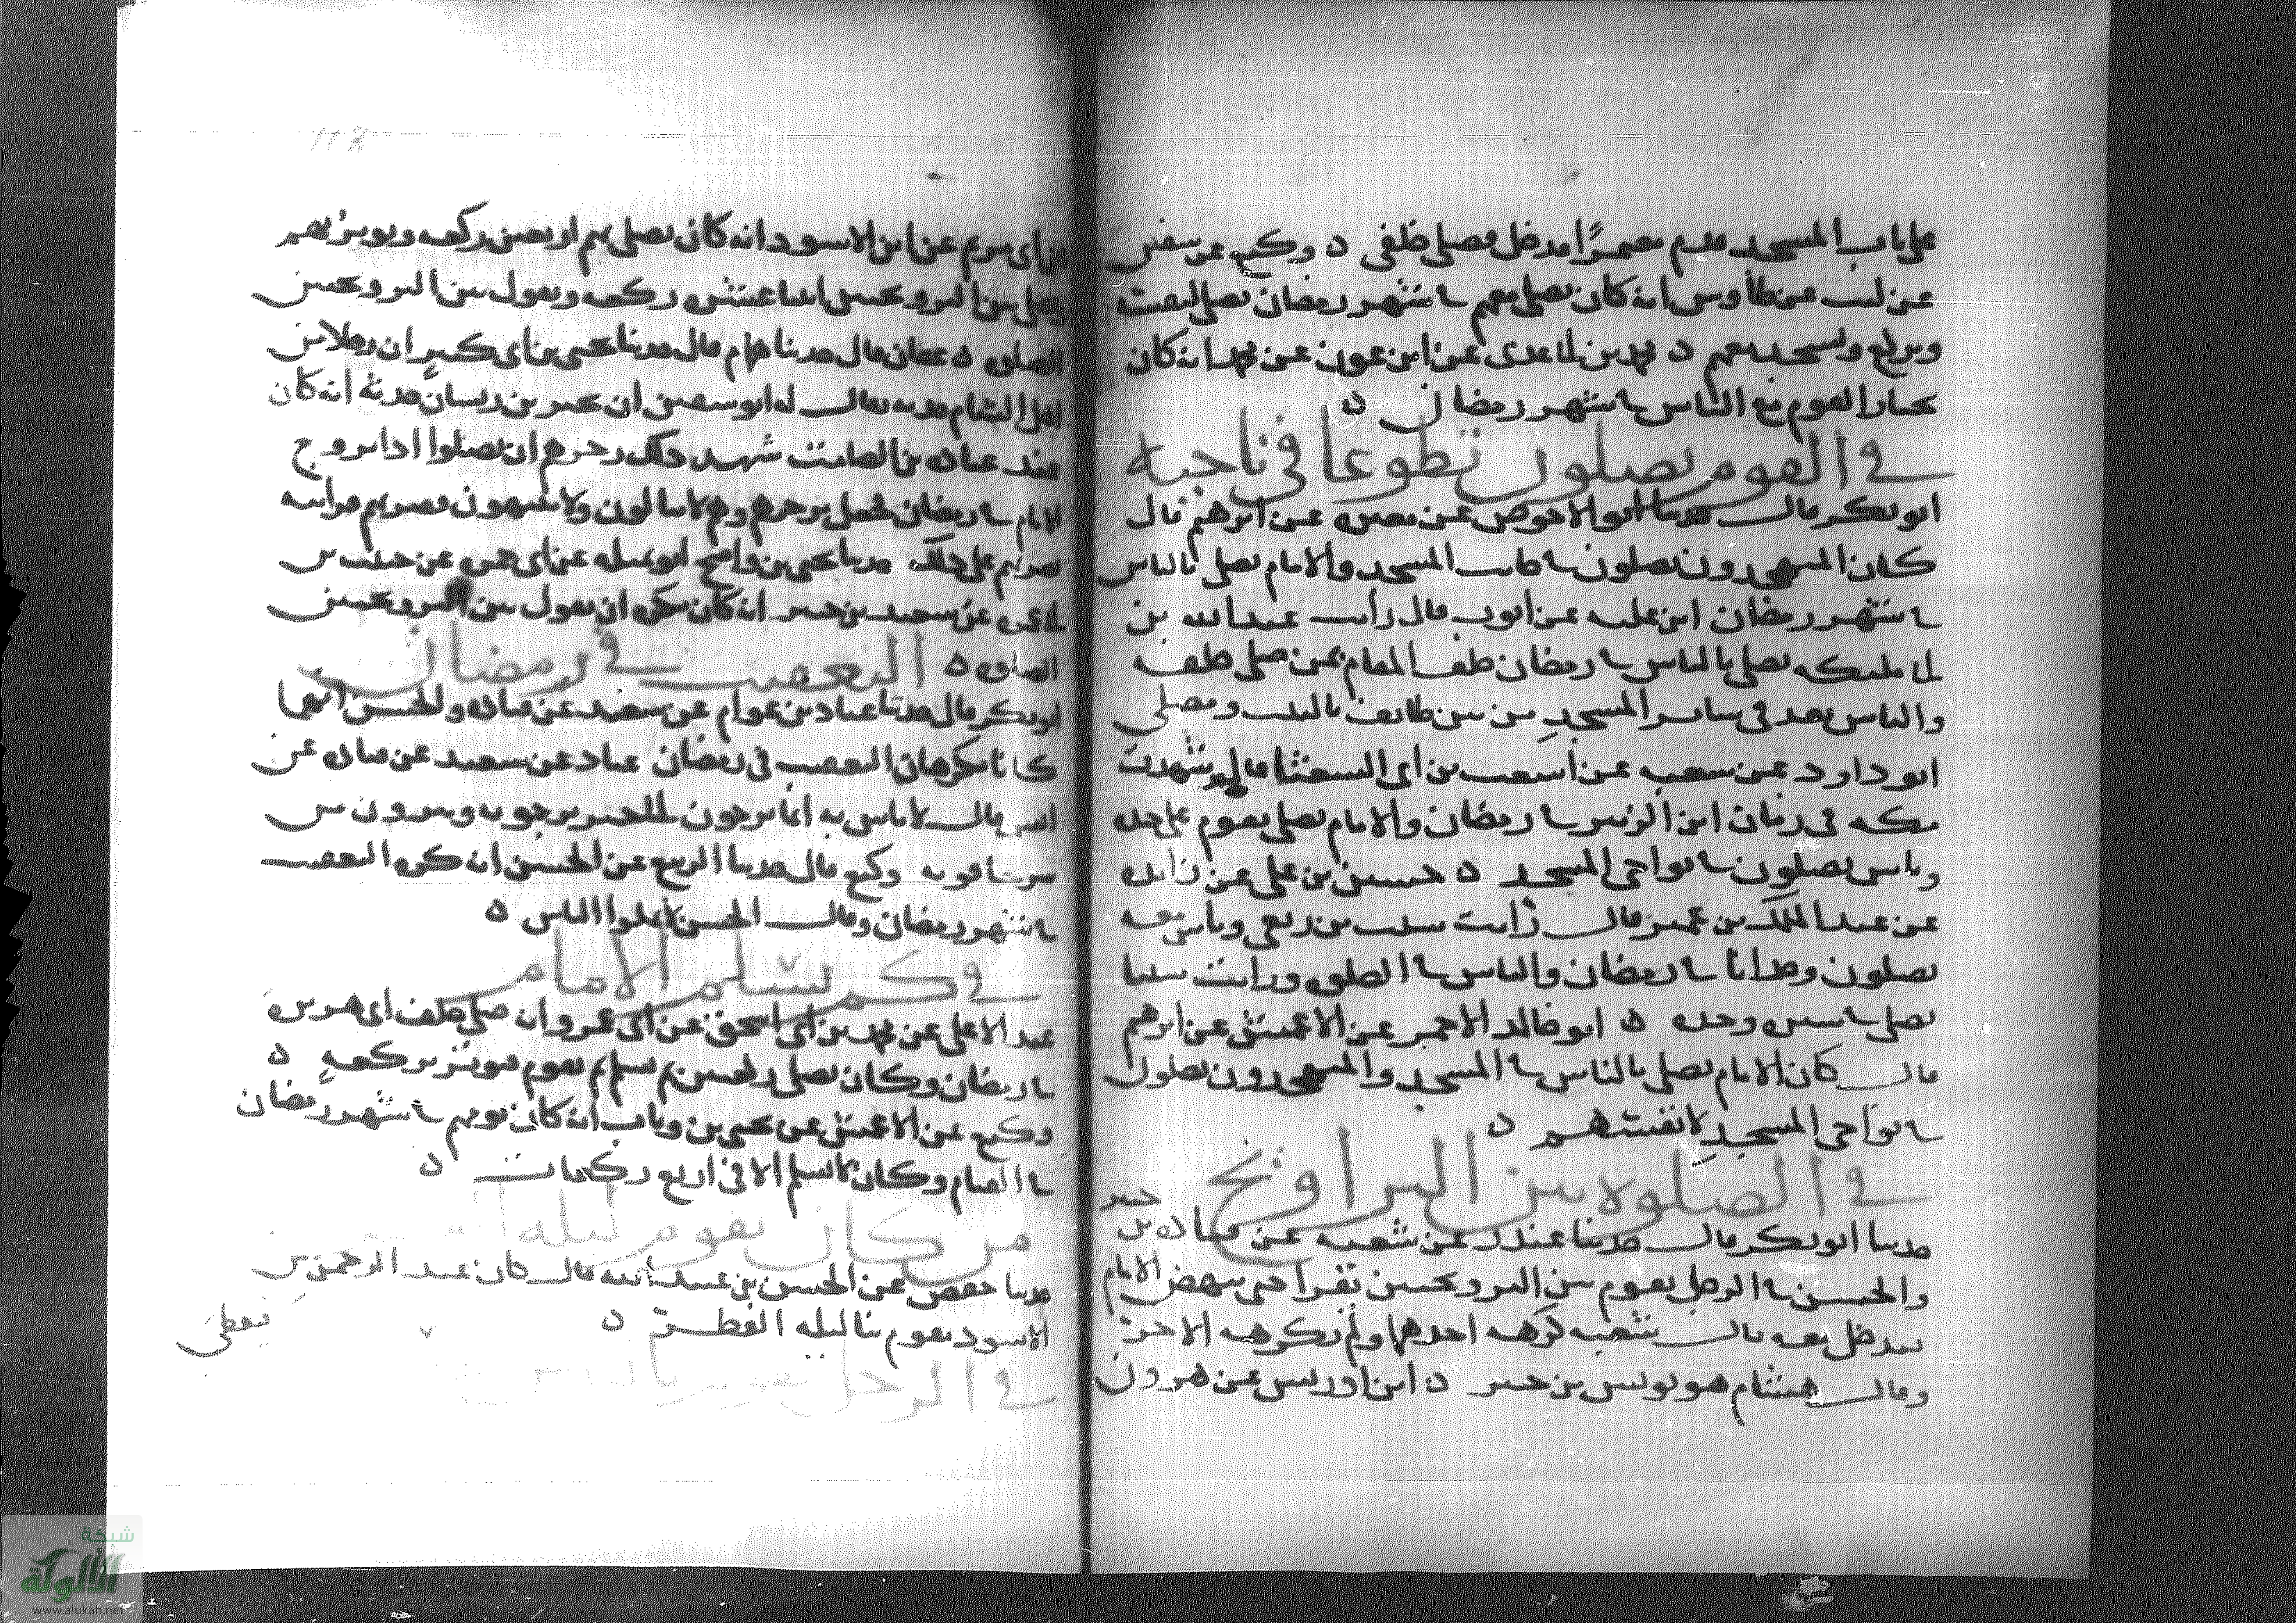 على باب المسجد معمرا فدخل فصلى خلفي ه وكيع عن سفين
عن ليث عن طاوس انه كان يصلي معهم في شهر رمضان
ويركع ويسجد معهم ه محمد بن ابي عدي عن ابن عون عن محمد انه كان
يختار القيام مع الناس في شهر رمضان ه
في القوم يصلون تطوعا في ناحيه
ابو بكر قال حدثنا ابو الاحوص عن مغيره عن ابرهيم قال
كان المتهجدون يصلون في جانب المسجد والامام يصلي بالناس
في شهر رمضان ابن عليه عن ايوب قال رايت عبد الله بن
ابي مليكه يصلي بالناس في رمضان خلف المقام بمن صلى خلفه
والناس بعد في ساير المسجد من بين طايف بالبيت ومصلي
ابو داود عن شعبه عن اشعث بن ابي الشعثا قال شهدت
مكه في زمان ابن الزبير في رمضان والامام يصلي بقوم على حده
وناس يصلون في نواحي المسجد ه حسين بن علي عن زايده
عن عبد الملك بن عمير قال رايت شبث بن ربعي وناس معه
يصلون وحدانا في رمضان والناس في الصلوه ورايت شبثا
يصلي في ستره وحده ه ابو خالد الاحمر عن الاعمش عن ابرهيم
قال كان الامام يصلي بالناس في المسجد والمتهجدون يصلون
في نواحي المسجد لانفسهم ه
في الصلوه بين التراويح
حدثنا ابو بكر قال حدثنا غندر عن شعبه عن قتاده بن جبير
والحسن في الرجل يقوم بين الترويحتين يقرا حتى ينهض الامام
فيدخل معه قال شعبه كرهه احدهما ولم يكرهه الاخر
وقال هشام هو يونس بن جبير ه ابن ادريس عن هرون
بن ابي مريم عن ابن الاسود انه كان يصلي بهم اربعين ركعه ويوتر بهم
ويصلي بين الترويحتين اثنا عشر ركعه ويقول بين الترويحتين
الصلوه ه عفان قال حدثنا همام قال حدثنا يحيى بن ابي كثير ان رجلا من
اهل الشام حدثه يقال له ابو سفين ان عمير بن ريسان حدثه انه كان
عند عباده بن الصامت شهد ذلك زجرهم ان يصلوا اذا تروح
الامام في رمضان فجعل يزجرهم وهم لا يبالون ولا ينتهون فضربهم فرايته
يضربهم على ذلك حدثنا يحيى بن واضح ابو تميله عن ابي حمزه عن حبيب بن
ابي عمره عن سعيد بن جبير انه كان يكره ان يقول بين الترويحتين
الصلوه ه التعقيب في رمضان
ابو بكر قال حدثنا عباد بن عوام عن سعيد عن قتاده والحسن انهما
كانا يكرهان التعقيب في رمضان عباد عن سعيد عن قتاده عن
انس قال لا باس به انما يرجعون الى خير يرجونه ويبرون من
شر يخافونه وكيع قال حدثنا الربيع عن الحسن انه كره التعقيب
في شهر رمضان وقال الحسن لا تملوا الناس ه
في كم يسلم الامام
عبد الاعلى عن محمد بن ابي اسحق عن ابي عمرو انه صلى خلف ابي هريره
في رمضان وكان يصلي ركعتين ثم يسلم ثم يقوم فيوتر بركعه ه
وكيع عن الاعمش عن يحيى بن وثاب انه كان يومهم في شهر رمضان
في القيام وكان لا يسلم الا في اربع ركعات ه
من كان يقوم ليله
حدثنا حفص عن الحسن بن عبيد الله قال كان عبد الرحمن بن
الاسود يقوم بنا ليله الفطر ه
في الرجل يقوم بالناس
فيعطى
شبكة
الألوكة
www.alukah.net